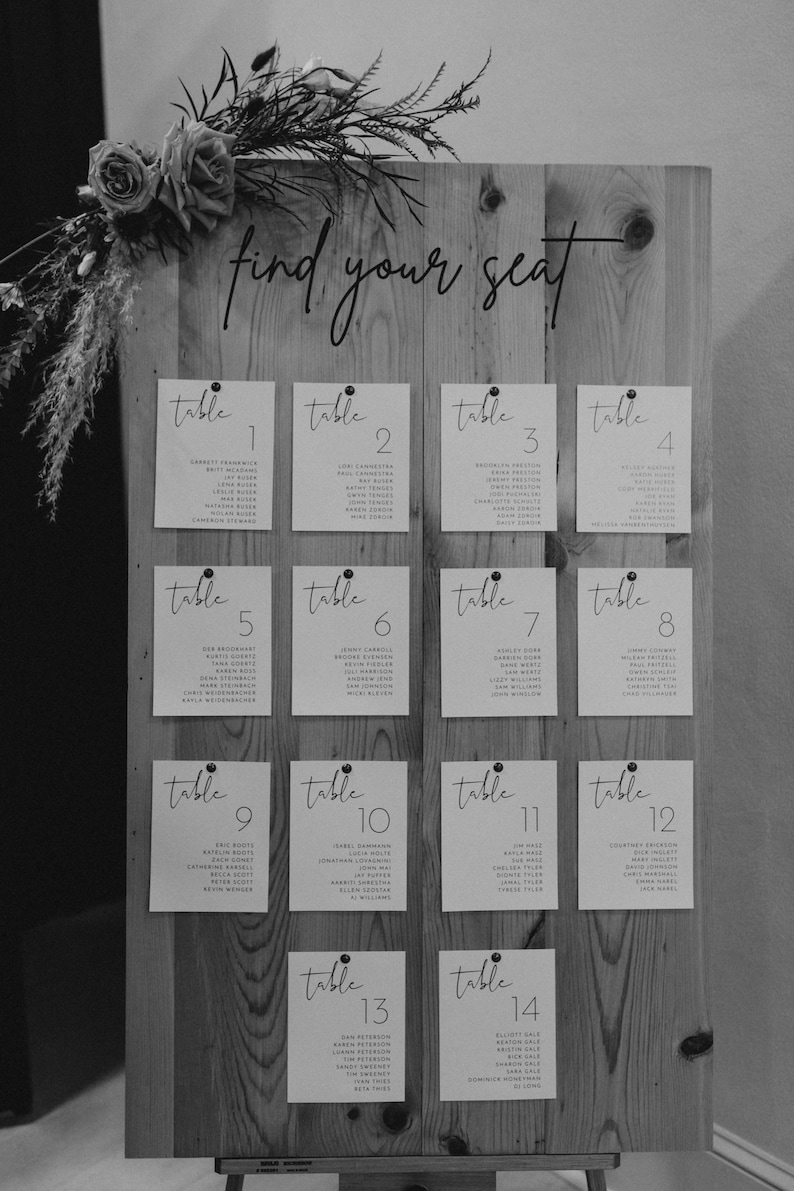 find your seat
table
1
GARRETT FRANKWICK
BRITT MCADAMS
JAY RUSEK
LENA RUSEK
LESLIE RUSEK
MAX RUSEK
NATASHA RUSEK
NOLAN RUSEK
CAMERON STEWARD
table
2
LORI CANNESTRA
PAUL CANNESTRA
RAY RUSEK
KATHY TENGES
GWYN TENGES
JOHN TENGES
KAREN ZDROIK
MIKE ZDROIK
table
3
BROOKLYN PRESTON
ERIKA PRESTON
JEREMY PRESTON
OWEN PRESTON
JODI PUCHALSKI
CHARLOTTE SCHULTZ
AARON ZDROIK
ADAM ZDROIK
DAISY ZDROIK
table
4
KELSEY AGATHER
AARON HUBER
KATIE HUBER
CODY MERRIFIELD
JOE RYAN
KAREN RYAN
NATALIE RYAN
BOB SWANSON
MELISSA VANBENTHUYSEN
table
5
DEB BROOKHART
KURTIS GOERTZ
TANA GOERTZ
KAREN ROSS
DENA STEINBACH
MARK STEINBACH
CHRIS WEIDENBACHER
KAYLA WEIDENBACHER
table
6
JENNY CARROLL
BROOKE EVENSEN
KEVIN FIEDLER
JULI HARRISON
ANDREW JEND
SAM JOHNSON
MICKI KLEVEN
table
7
ASHLEY DORR
DARRIEN DORR
DANE WERTZ
SAM WERTZ
LIZZY WILLIAMS
SAM WILLIAMS
JOHN WINSLOW
table
8
JIMMY CONWAY
MILEAH FRITZELL
PAUL FRITZELL
OWEN SCHLEIF
KATHRYN SMITH
CHRISTINE TSAI
CHAD VILLHAUER
table
9
ERIC BOOTS
KATELIN BOOTS
ZACH GONET
CATHERINE KARSELL
BECCA SCOTT
PETER SCOTT
KEVIN WENGER
table
10
ISABEL DAMMANN
LUCIA HOLTE
JONATHAN LOVAGNINI
JOHN MAI
JAY PUFFER
AAKRITI SHRESTHA
ELLEN SZOSTAK
AJ WILLIAMS
table
11
JIM HASZ
KAYLA HASZ
SUE HASZ
CHELSEA TYLER
DIONTE TYLER
JAMAL TYLER
TYRESE TYLER
table
12
COURTNEY ERICKSON
DICK INGLETT
MARY INGLETT
DAVID JOHNSON
CHRIS MARSHALL
EMMA NAREL
JACK NAREL
table
13
DAN PETERSON
KAREN PETERSON
LUANN PETERSON
TIM PETERSON
SANDY SWEENEY
TIM SWEENEY
IVAN THIES
RETA THIES
table
14
ELLIOTT GALE
KEATON GALE
KRISTIN GALE
RICK GALE
SHARON GALE
SARA GALE
DOMINICK HONEYMAN
DJ LONG